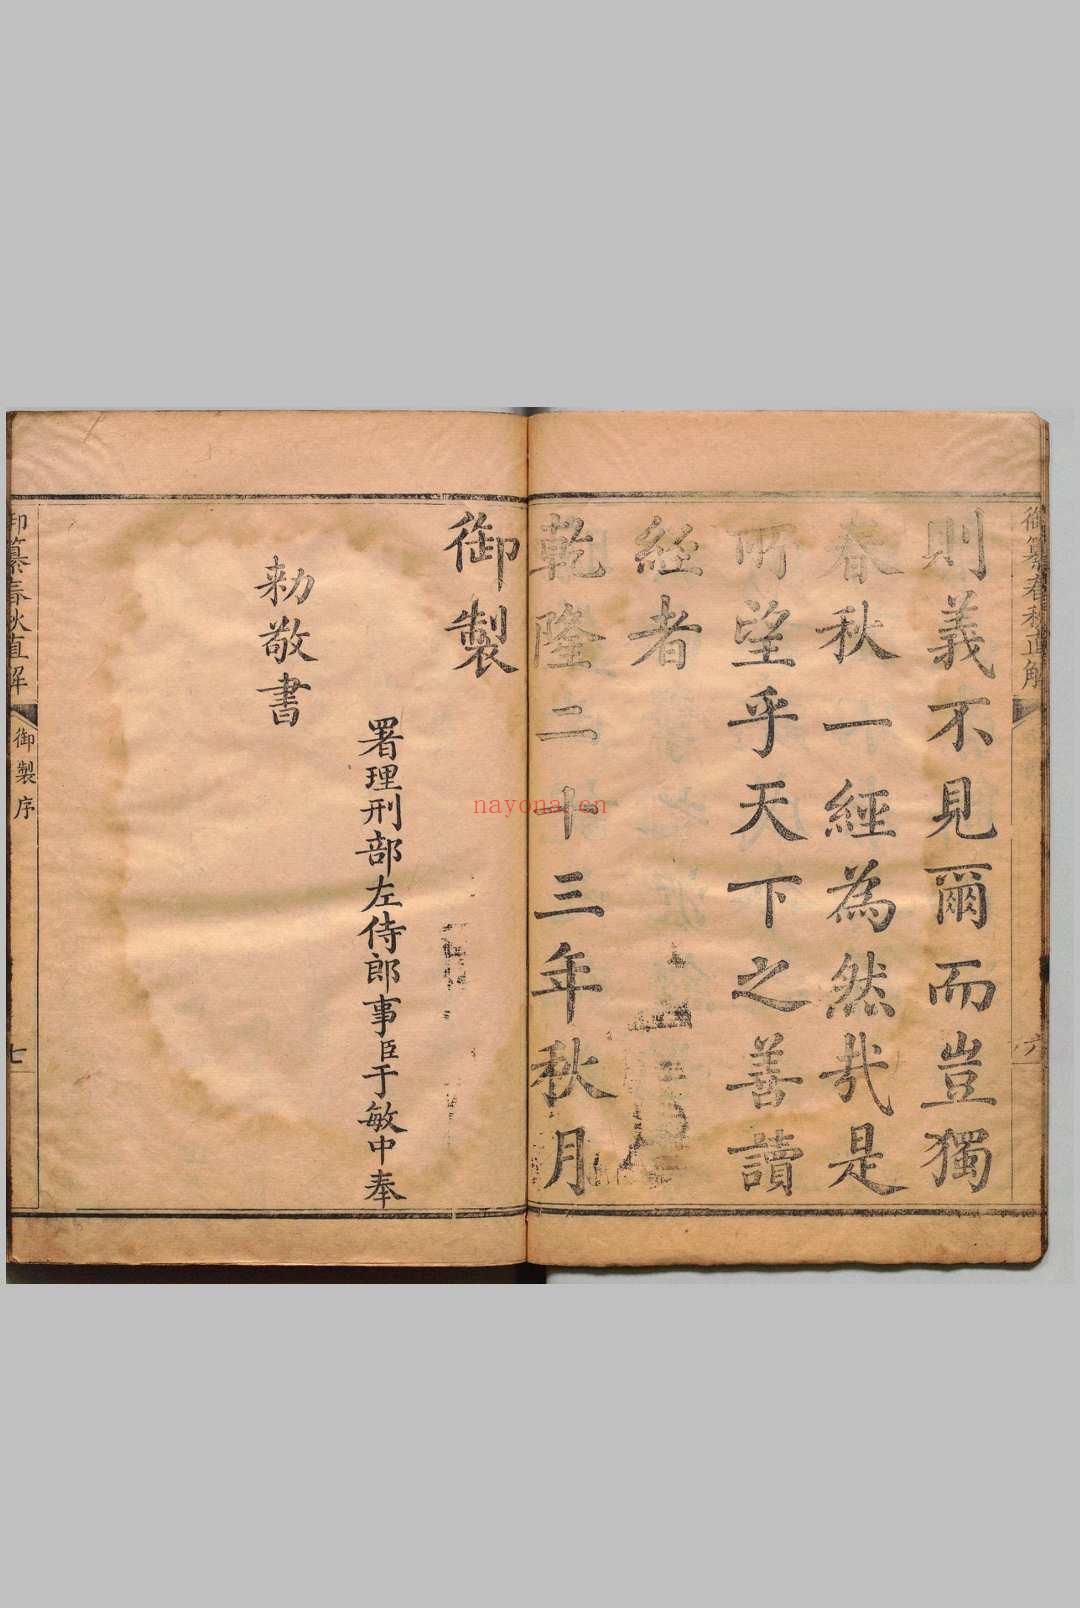 御纂春秋直解
六
則義不見爾而豈獨
春秋一經為然哉是
所望乎天下之善讀
經者
乾隆二十三年秋月
御製
署理刑部左侍郎事臣于敏中奉
勅敬書
御纂春秋直解
御製序
七
nayona.cn